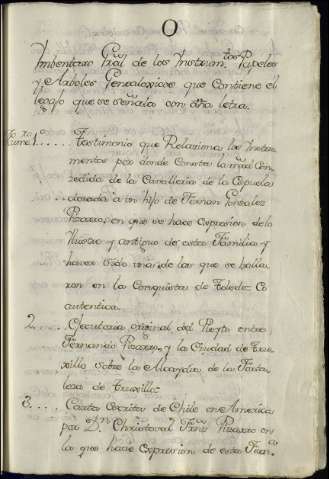 O
Imbentario Gral de los Instrum.tos Papeles
y Arboles Genealogicos que contiene el
legajo que se señala con dha letra.
1.º .... Testimonio que Relaciona los Instru
mentos por donde Consta la mrd Con
cedida de la Cavalleria de la Espuela
dorada a un hijo de Fernan Gonzales
Pizarro, en que se hace expresion de lo
Ilustre y antiguo de esta Familia y
haver sido una de las que se halla
ron en la Conquista de Toledo Es
autentica.
2.... Executoria original del Pleyto entre
Fernando Pizarro, y la Ciudad de Tru
xillo sobre la Alcaydia de la Forta
leza de truxillo.
3.... Cartas Escritas de Chile en America
por D.n Christoval Pizarro en
la que hace expresion de esta Fam.a